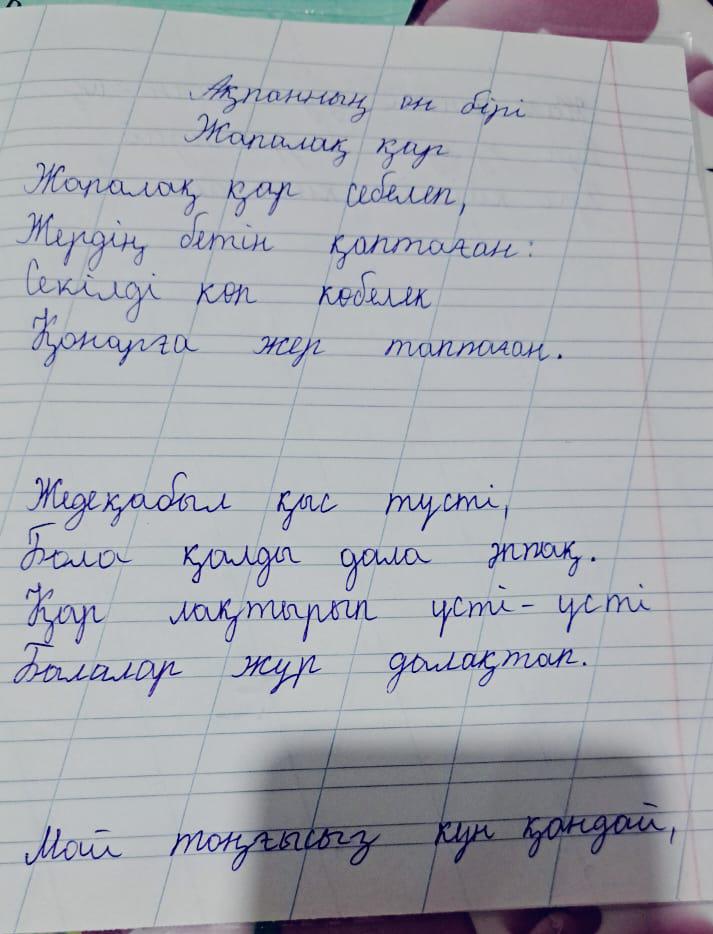 Ақпанның он бірі
Жапалақ қар
Жапалақ қар себелеп,
Жердің бетін қаптаған:
Секілді көп көбелек
Қонарға жер таппаған.
Жедеқабыл қыс түсті,
Бола қалды дала әппақ.
Қар лақтырып үсті-үсті
Балалар жүр далақтап.
Май тоңғысыз күн қандай,